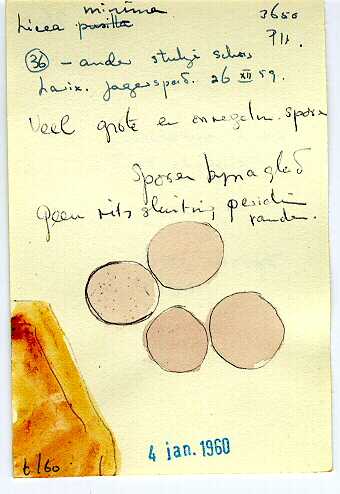 minima
Licea pusilla
3650
Pls.
36 - ander stukje schors
Larix. Jagerspad. 26 XII 59.
Veel grote en onregelm. sporen
Sporen bijna glad
Geen rits sluiting peridium
randen.
6/60
4 jan. 1960